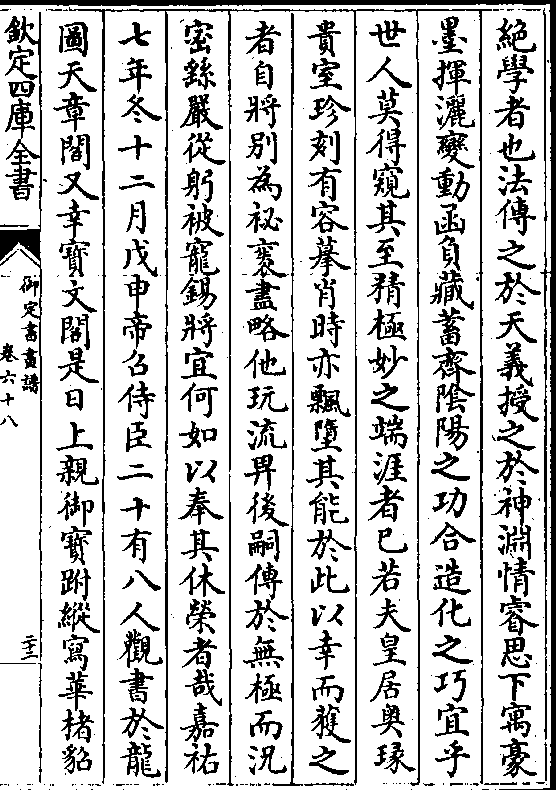 絶學者也法傳之於天義授之於神淵情睿思下寓豪
墨揮灑變動函負藏蓄齊陰陽之功合造化之巧宜乎
世人莫得窺其至精極妙之端涯者已若夫皇居奥琭
貴室珍刻有容摹肖時亦飄墮其能於此以幸而獲之
者自將别為祕褱盡略他玩流畀後嗣傳於無極而況
密繇嚴從躬被寵錫將宜何如以奉其休榮者哉嘉祐
七年冬十二月戊申帝召侍臣二十有八人觀書於龍
圖天章閣又幸寳文閣是日上親御寳跗縱寫華楮貂
欽定四庫全書
御定書畫譜
卷六十八
二十二